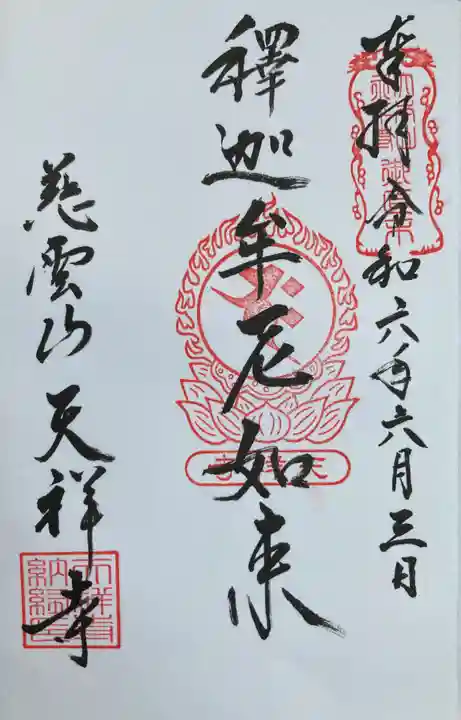 奉拝 令和六年六月三日
釋迦牟尼如来
慈雲山 天祥寺